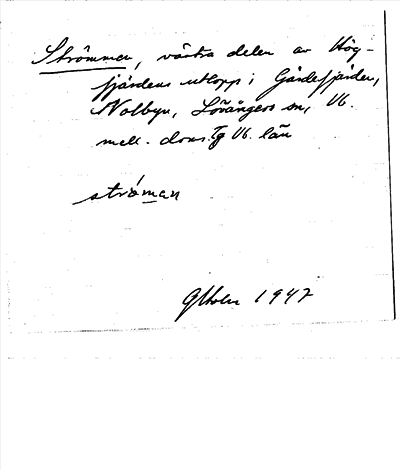 Strömmen, västra delen av Hög-
fjärdens utlopp i Gärdefjärden,
Nolbyn, Lövångers sn, Vb.
mell. doms. Vb. län
ströman
GHolm 1947